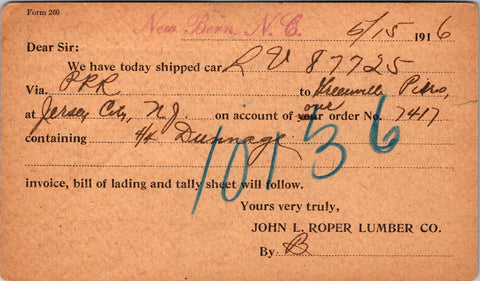 Form 260
New Bern, N. C.
5/15 1916
Dear Sir:
We have today shipped car R V 87725
Via. PRR to Greenville Piers,
at Jersey City, N.J. on account of your our order No. 7417
containing 4/4 Dunnage
10136
invoice, bill of lading and tally sheet will follow.
Yours very truly,
JOHN L. ROPER LUMBER CO.
By B